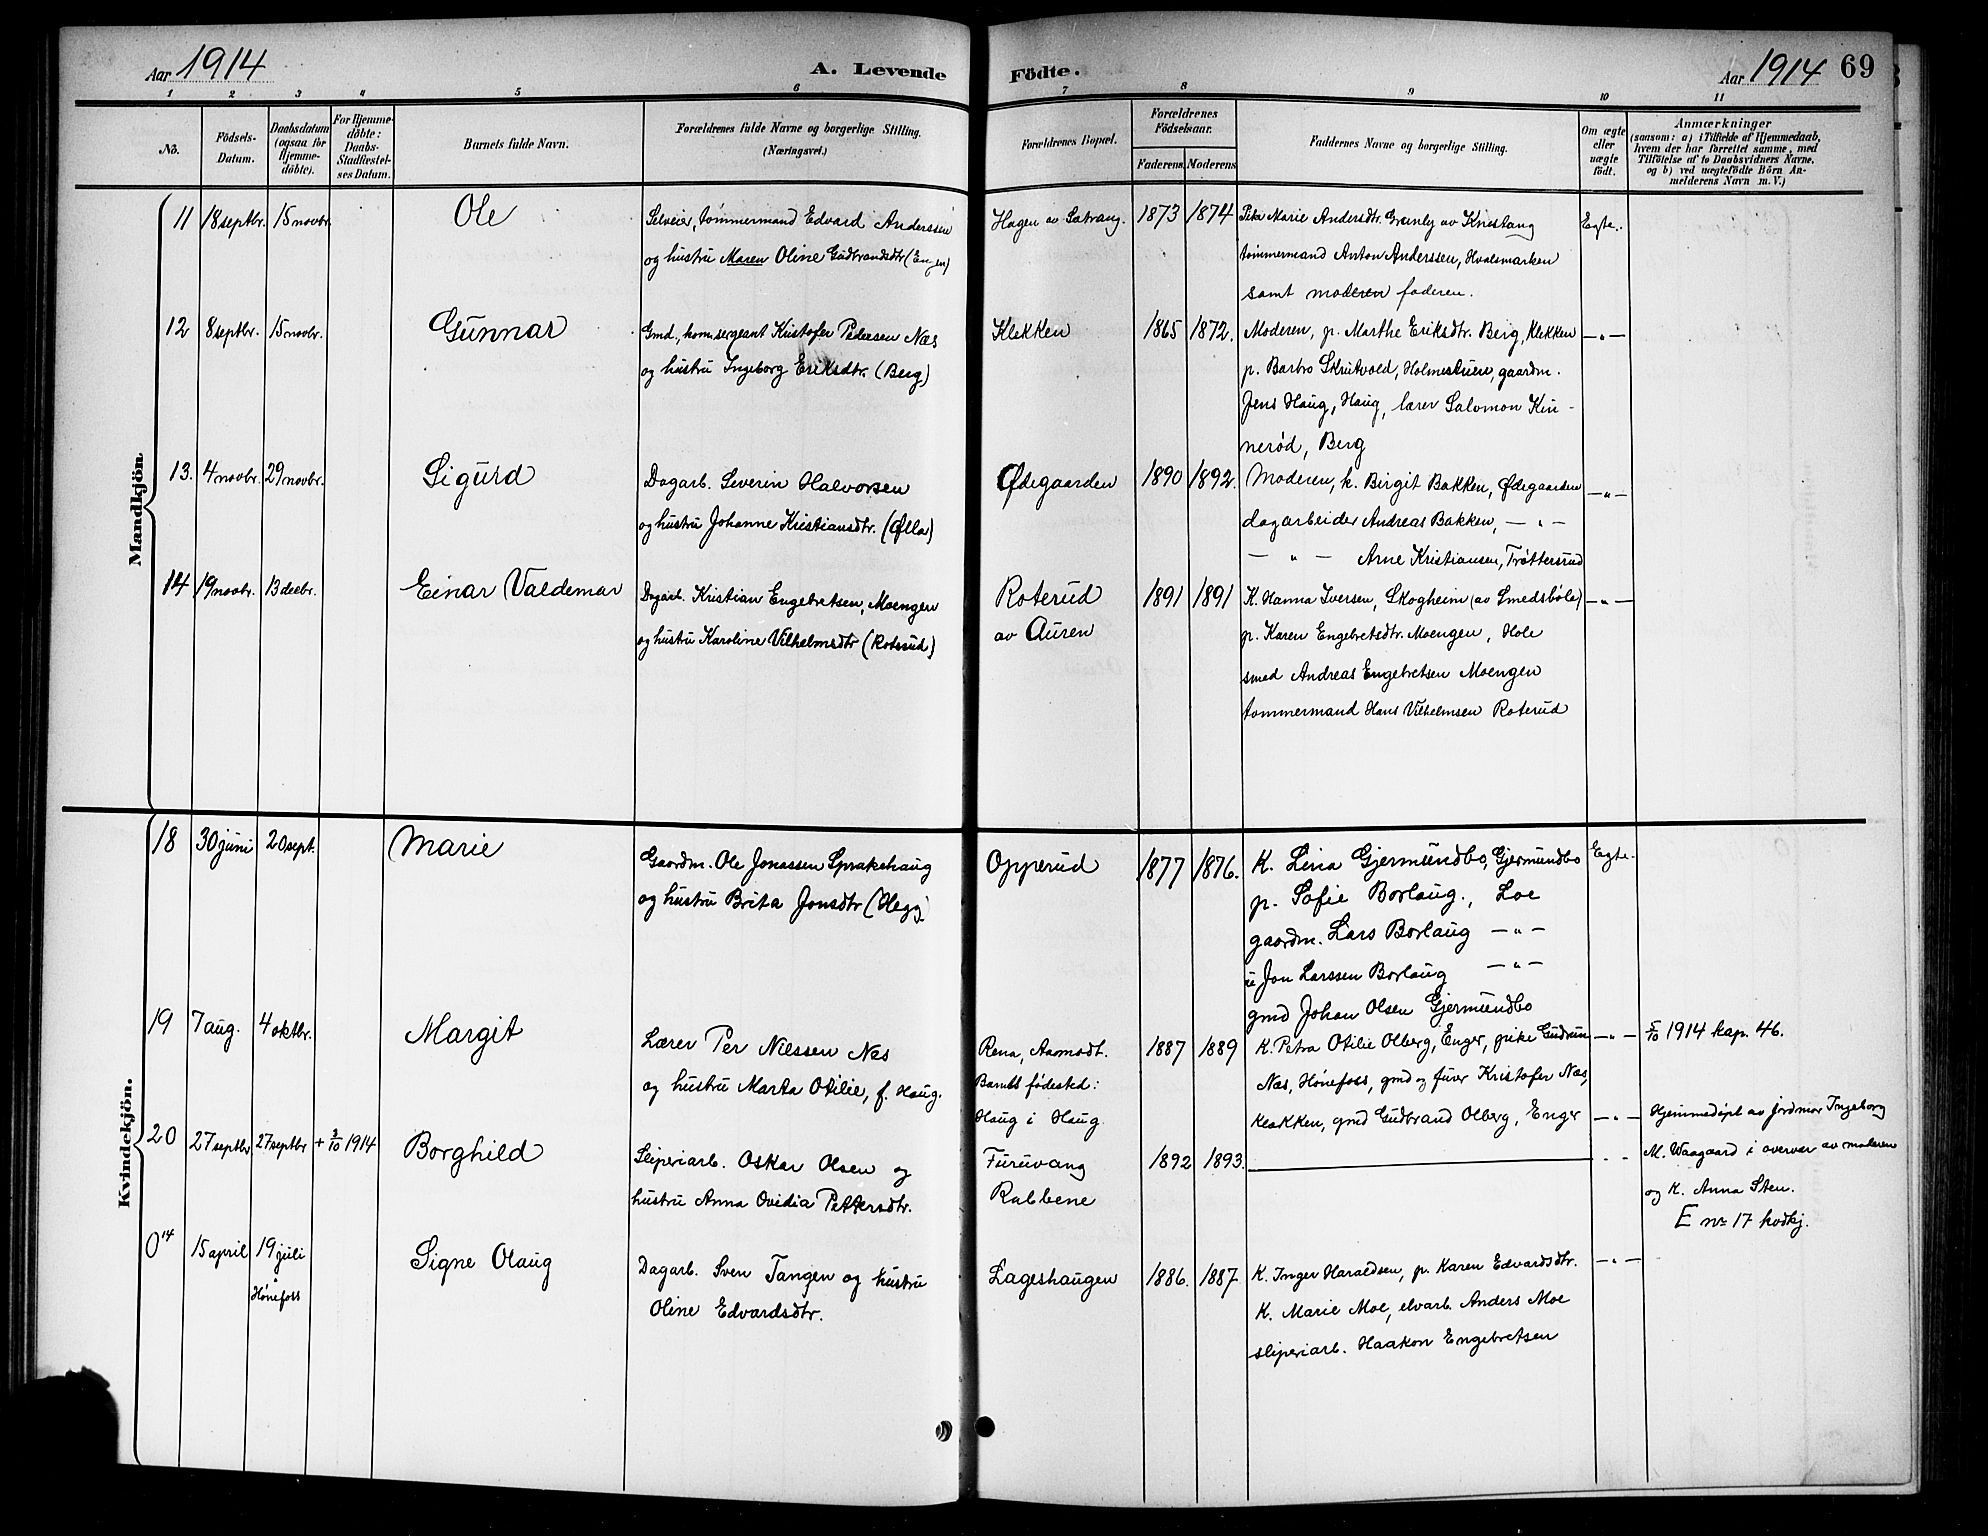 Aar 1914
A. Levende
Födte.
Aar 1914 69
1 2 3 4 5 6 7 8 9 10 11
No.
Födsels-Datum.
Daabsdatum (ogsaa for Hjemme-döbte).
For Hjemme-döbte: Daabs-Stadfæstel-ses Datum.
Barnets fulde Navn.
Forældrenes fulde Navne og borgerlige Stilling.
(Næringsvei.)
Forældrenes Bopæl.
Forældrenes Födselsaar.
Faderens Moderens
Faddernes Navne og borgerlige Stilling.
Om ægte eller uægte födt.
Anmærkninger
(saasom: a) i Tilfælde af Hjemmedaab,
hvem der har forrettet samme, med
Tilföielse af to Daabsvidners Navne,
og b) ved uægtefödte Börn An-
melderens Navn m. V.)
Mandkjön.
11 18 septbr. 15 novbr. Ole
Selveier, tømmermand Edvard Anderssen
og hustru Maren Oline Gudbrandsdtr (Engen)
Hagen av Sætrang. 1873 1874
Pike Marie Andersdtr. Grønly av Knestang
tømmermand Anton Anderssen, Hvalsmarken
samt moderen faderen.
Egte.
12 8 septbr. 15 novbr. Gunnar
Gmd., kom.sergeant Kristofer Pedersen Næs
og hustru Ingeborg Eriksdtr. (Berg)
Klekken 1865 1872.
Moderen, p. Marthe Eriksdtr. Berg, Klekken
p. Barbro Skrutvold, Holmestuen, gaardm.
Jens Haug, Haug, lærer Salomon Kin-
nerød, Berg
— " —
13. 4 novbr. 29 novbr. Sigurd
Dagarb. Severin Halvorsen
og hustru Johanne Kristiansdtr. (Ølla)
Ødegaarden 1890 1892.
Moderen, k. Birgit Bakken, Ødegaarden
dagarbeider Andreas Bakken, — " —
— " — Arne Kristiansen, Trøttersrud
— " —
14 19 novbr. 13 decbr. Einar Valdemar
Dagarb. Kristian Engebretsen, Moengen
og hustru Karoline Vilhelmsdtr (Roterud)
Roterud
av Auren
1891 1891
K. Hanna Iversen, Skogheim (av Smedsbøle)
p. Karen Engebretsdtr. Moengen, Hole
smed Andreas Engebretsen Moengen
tømmermand Hans Vilhelmsen Roterud
— " —
Kvindekjön.
18 30 juni 20 sept. Marie
Gaardm. Ole Jonassen Sprakehaug
og hustru Brita Jonsdtr (Hegg)
Opperud 1877 1876.
K. Lina Gjermundbo, Gjermundbo
p. Sofie Borlaug., Loe
gaardm. Lars Borlaug — " —
u Jon Larssen Borlaug — " —
gmd Johan Olsen Gjermundbo
Egte.
19 7 aug. 4 oktbr. Margit
Lærer Per Nilssen Nes
og hustru Marta Otilie, f. Haug.
Rena, Aamodt.
Barnets fødested:
Haug i Haug
1887 1889
K. Petra Otilie Olberg, Enger, pike Gudrun
Næs, Hønefoss, gmd og furer Kristofer Næs,
Klækken, gmd Gudbrand Olberg, Enger
— " —
5/10 1914 kap. 46.
20 27 septbr 27 septbr + 3/10 1914 Borghild
Sliperiarb. Oskar Olsen og
hustru Anna Ovidia Pettersdtr.
Furuvang
Rabbene
1892 1893.
— " —
Hjemmedøpt av jordmor Ingeborg
M. Waagaard i overvær av moderen
og K. Anna Sten.
E no 17 kvdkj.
0 14 15 april 19 juli
Hønefoss
Signe Olaug
Dagarb. Sven Tangen og hustru
Oline Edvardsdtr.
Lageshaugen 1886. 1887
K. Inger Haraldsen, p. Karen Edvardsdtr.
K. Marie Moe, elvarb. Anders Moe
sliperiarb. Haakon Engebretsen
— " —